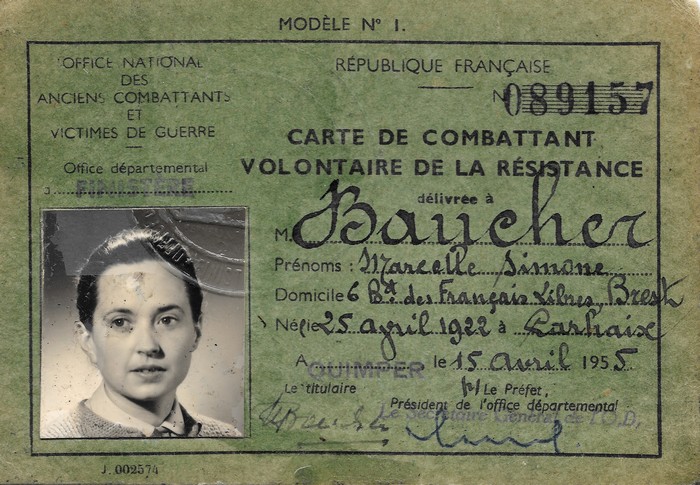 MODÈLE N° I.
OFFICE NATIONAL
DES
ANCIENS COMBATTANTS
ET
VICTIMES DE GUERRE
Office départemental
FINISTÈRE
RÉPUBLIQUE FRANÇAISE
N° 089157
CARTE DE COMBATTANT
VOLONTAIRE DE LA RÉSISTANCE
délivrée à
M. Baucher
Prénoms : Marcelle Simone
Domicile 6 Bd des Français Libres, Brest
Né(e) 25 avril 1922 à Carhaix
A QUIMPER le 15 avril 1955.
Le titulaire
Le Préfet,
Président de l'office départemental
Le Secrétaire Général de l'O.D,
J. 002574